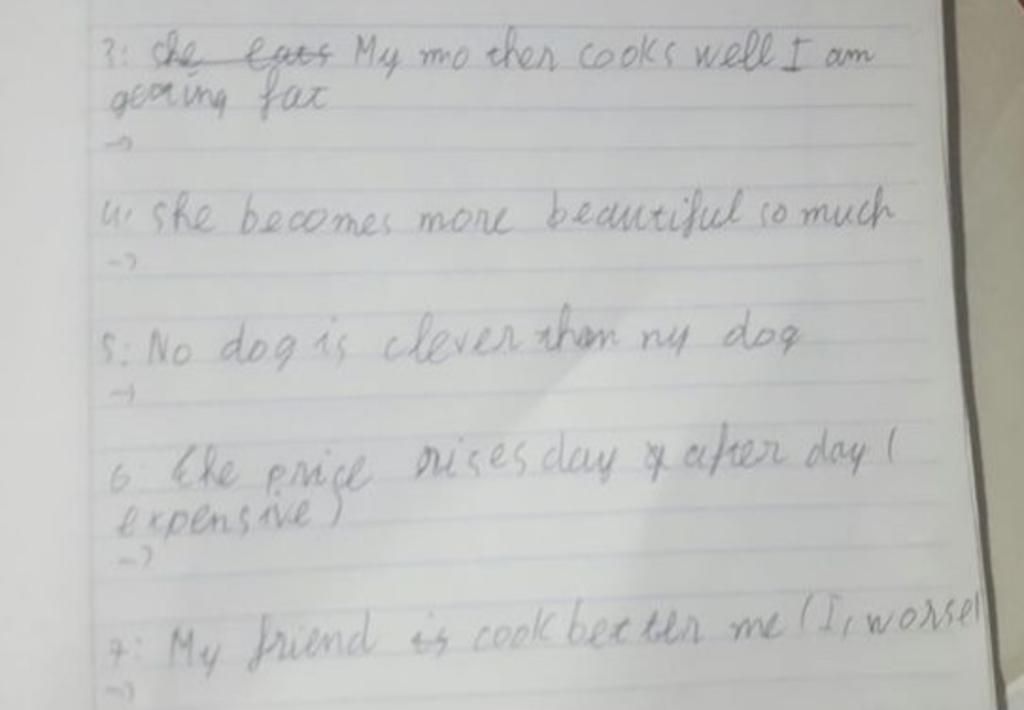 3: she eats My mother cooks well I am
getting fat
→
4. she becomes more beautiful so much
→
5: No dog is clever than my dog
→
6: The price rises day after day (
expensive)
→
7: My friend is cook better me (I, worse)
→